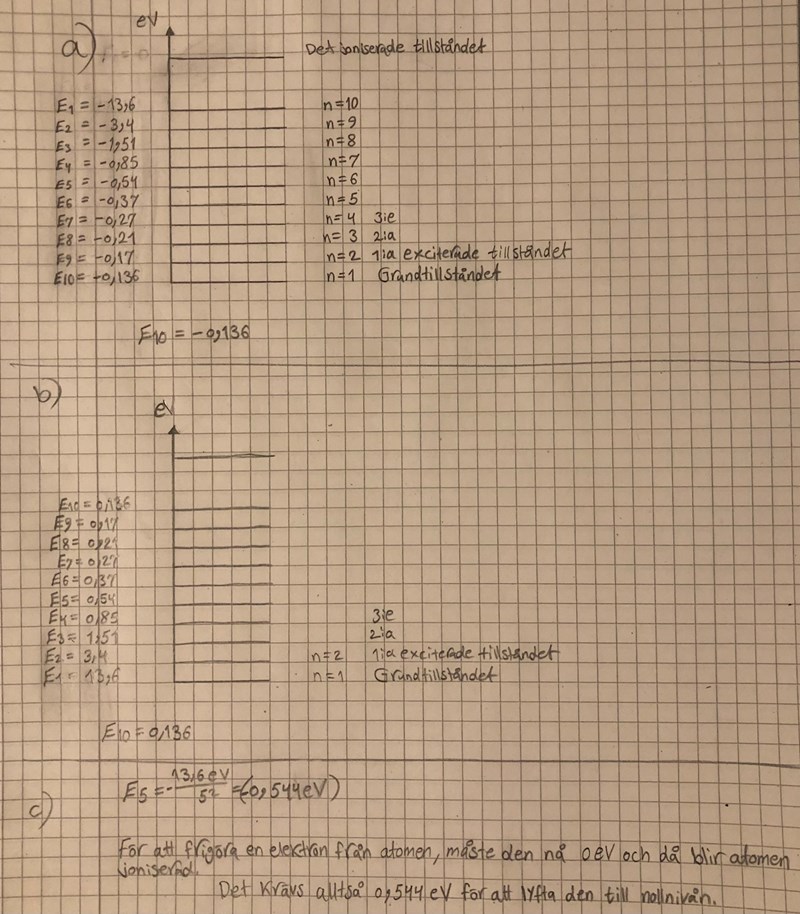 eV
a)
Det joniserade tillståndet
E1 = -13,6 n=10
E2 = -3,4 n=9
E3 = -1,51 n=8
E4 = -0,85 n=7
E5 = -0,54 n=6
E6 = -0,37 n=5
E7 = -0,27 n=4 3:e
E8 = -0,21 n=3 2:a
E9 = -0,17 n=2 1:a exciterade tillståndet
E10 = -0,136 n=1 Grundtillståndet
E10 = -0,136
b)
eV
E10 = 0,136
E9 = 0,17
E8 = 0,21
E7 = 0,27
E6 = 0,37
E5 = 0,54
E4 = 0,85 3:e
E3 = 1,51 2:a
E2 = 3,4 n=2 1:a exciterade tillståndet
E1 = 13,6 n=1 Grundtillståndet
E10 = 0,136
c)
E5 = -13,6 eV/5² = (-0,544 eV)
För att frigöra en elektron från atomen, måste den nå 0 eV och då blir atomen
joniserad.
Det krävs alltså 0,544 eV för att lyfta den till nollnivån.